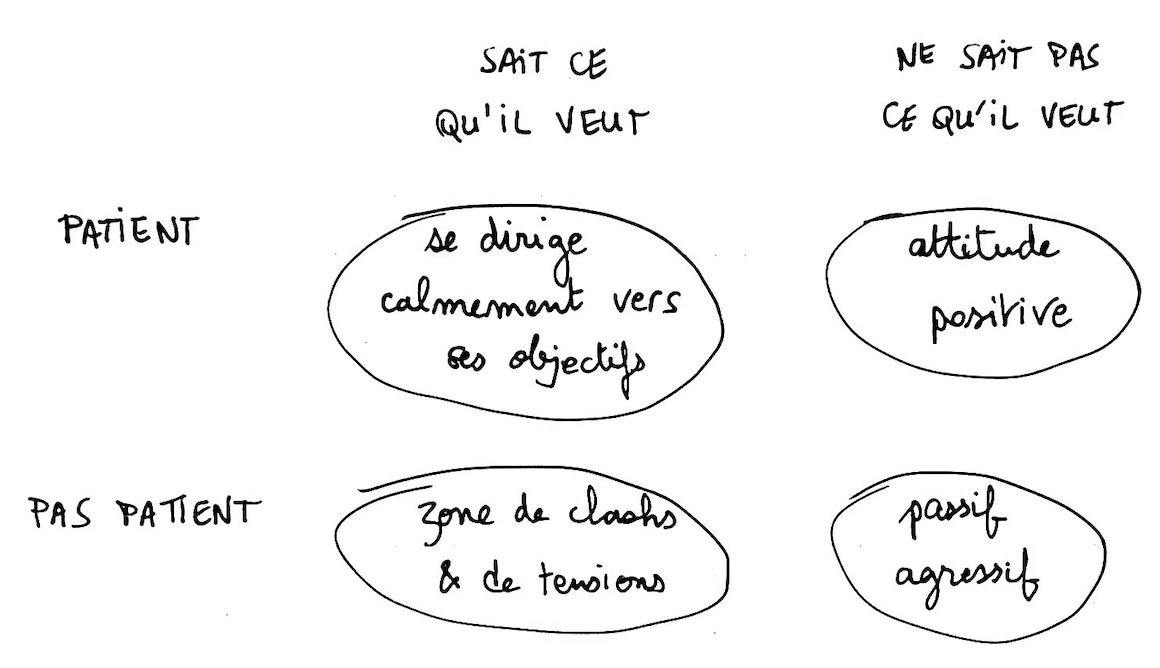 SAIT CE
QU'IL VEUT
NE SAIT PAS
CE QU'IL VEUT
PATIENT
se dirige
calmement vers
ses objectifs
attitude
positive
PAS PATIENT
zone de clashs
& de tensions
passif
agressif